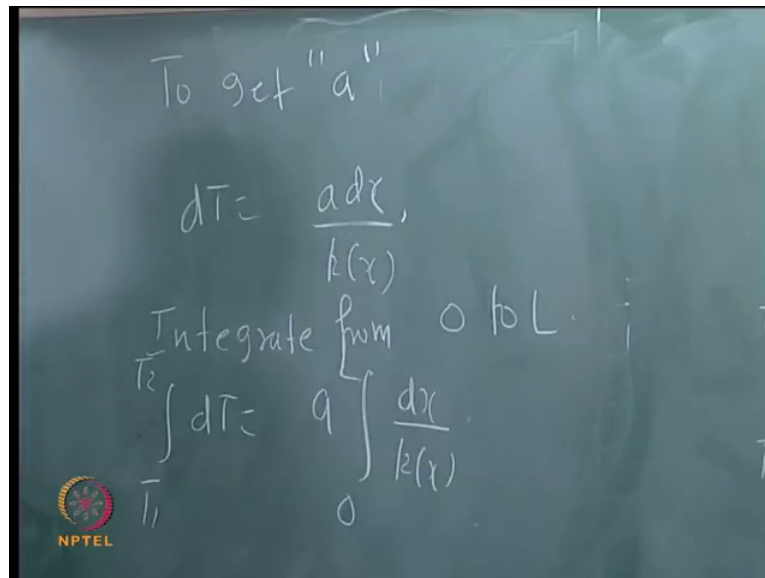 To get "a"
dT = a dx / k(x)
Integrate from 0 to L.
∫_{T1}^{T2} dT = a ∫_0^L dx / k(x)
NPTEL